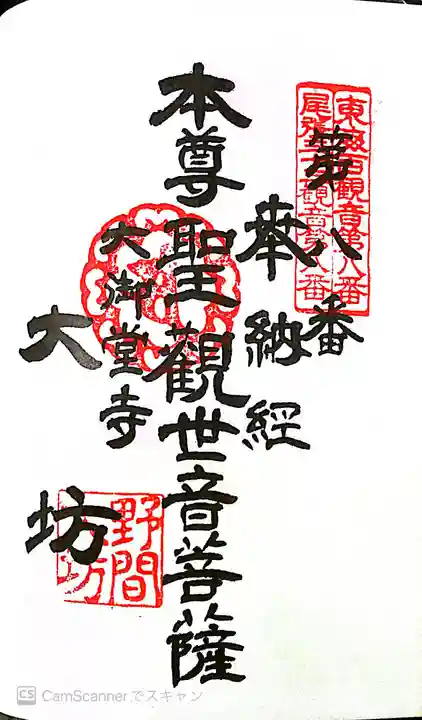 東海百観音第八番
尾張三十三観音第八番
第八番
奉納経
本尊聖観世音菩薩
大御堂寺
大坊
野間
大坊
CamScannerでスキャン